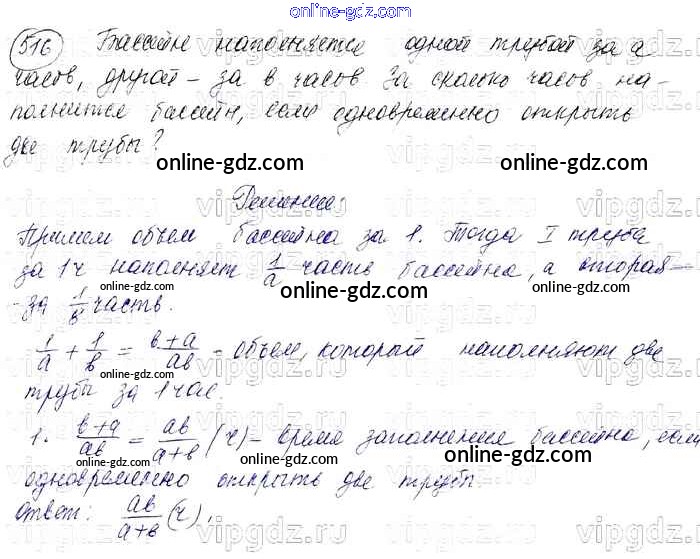 online-gdz.com
516 Бассейн наполняется одной трубой за a
часов, другой – за b часов За сколько часов на-
полнится бассейн, если одновременно открыть
две трубы?
online-gdz.com online-gdz.com
Решение:
Примем объем бассейна за 1. Тогда I труба
за 1 ч наполняет 1/a часть бассейна, а вторая –
online-gdz.com
- за 1/b часть.
1/a + 1/b = (b+a)/ab – объем, который наполняют две
online-gdz.com
трубы за 1 час.
1. (b+a)/ab = ab/(a+b) (ч) – время заполнения бассейна, если
online-gdz.com online-gdz.com
одновременно открыть две трубы.
Ответ: ab/(a+b) (ч).
online-gdz.com
vipgdz.com